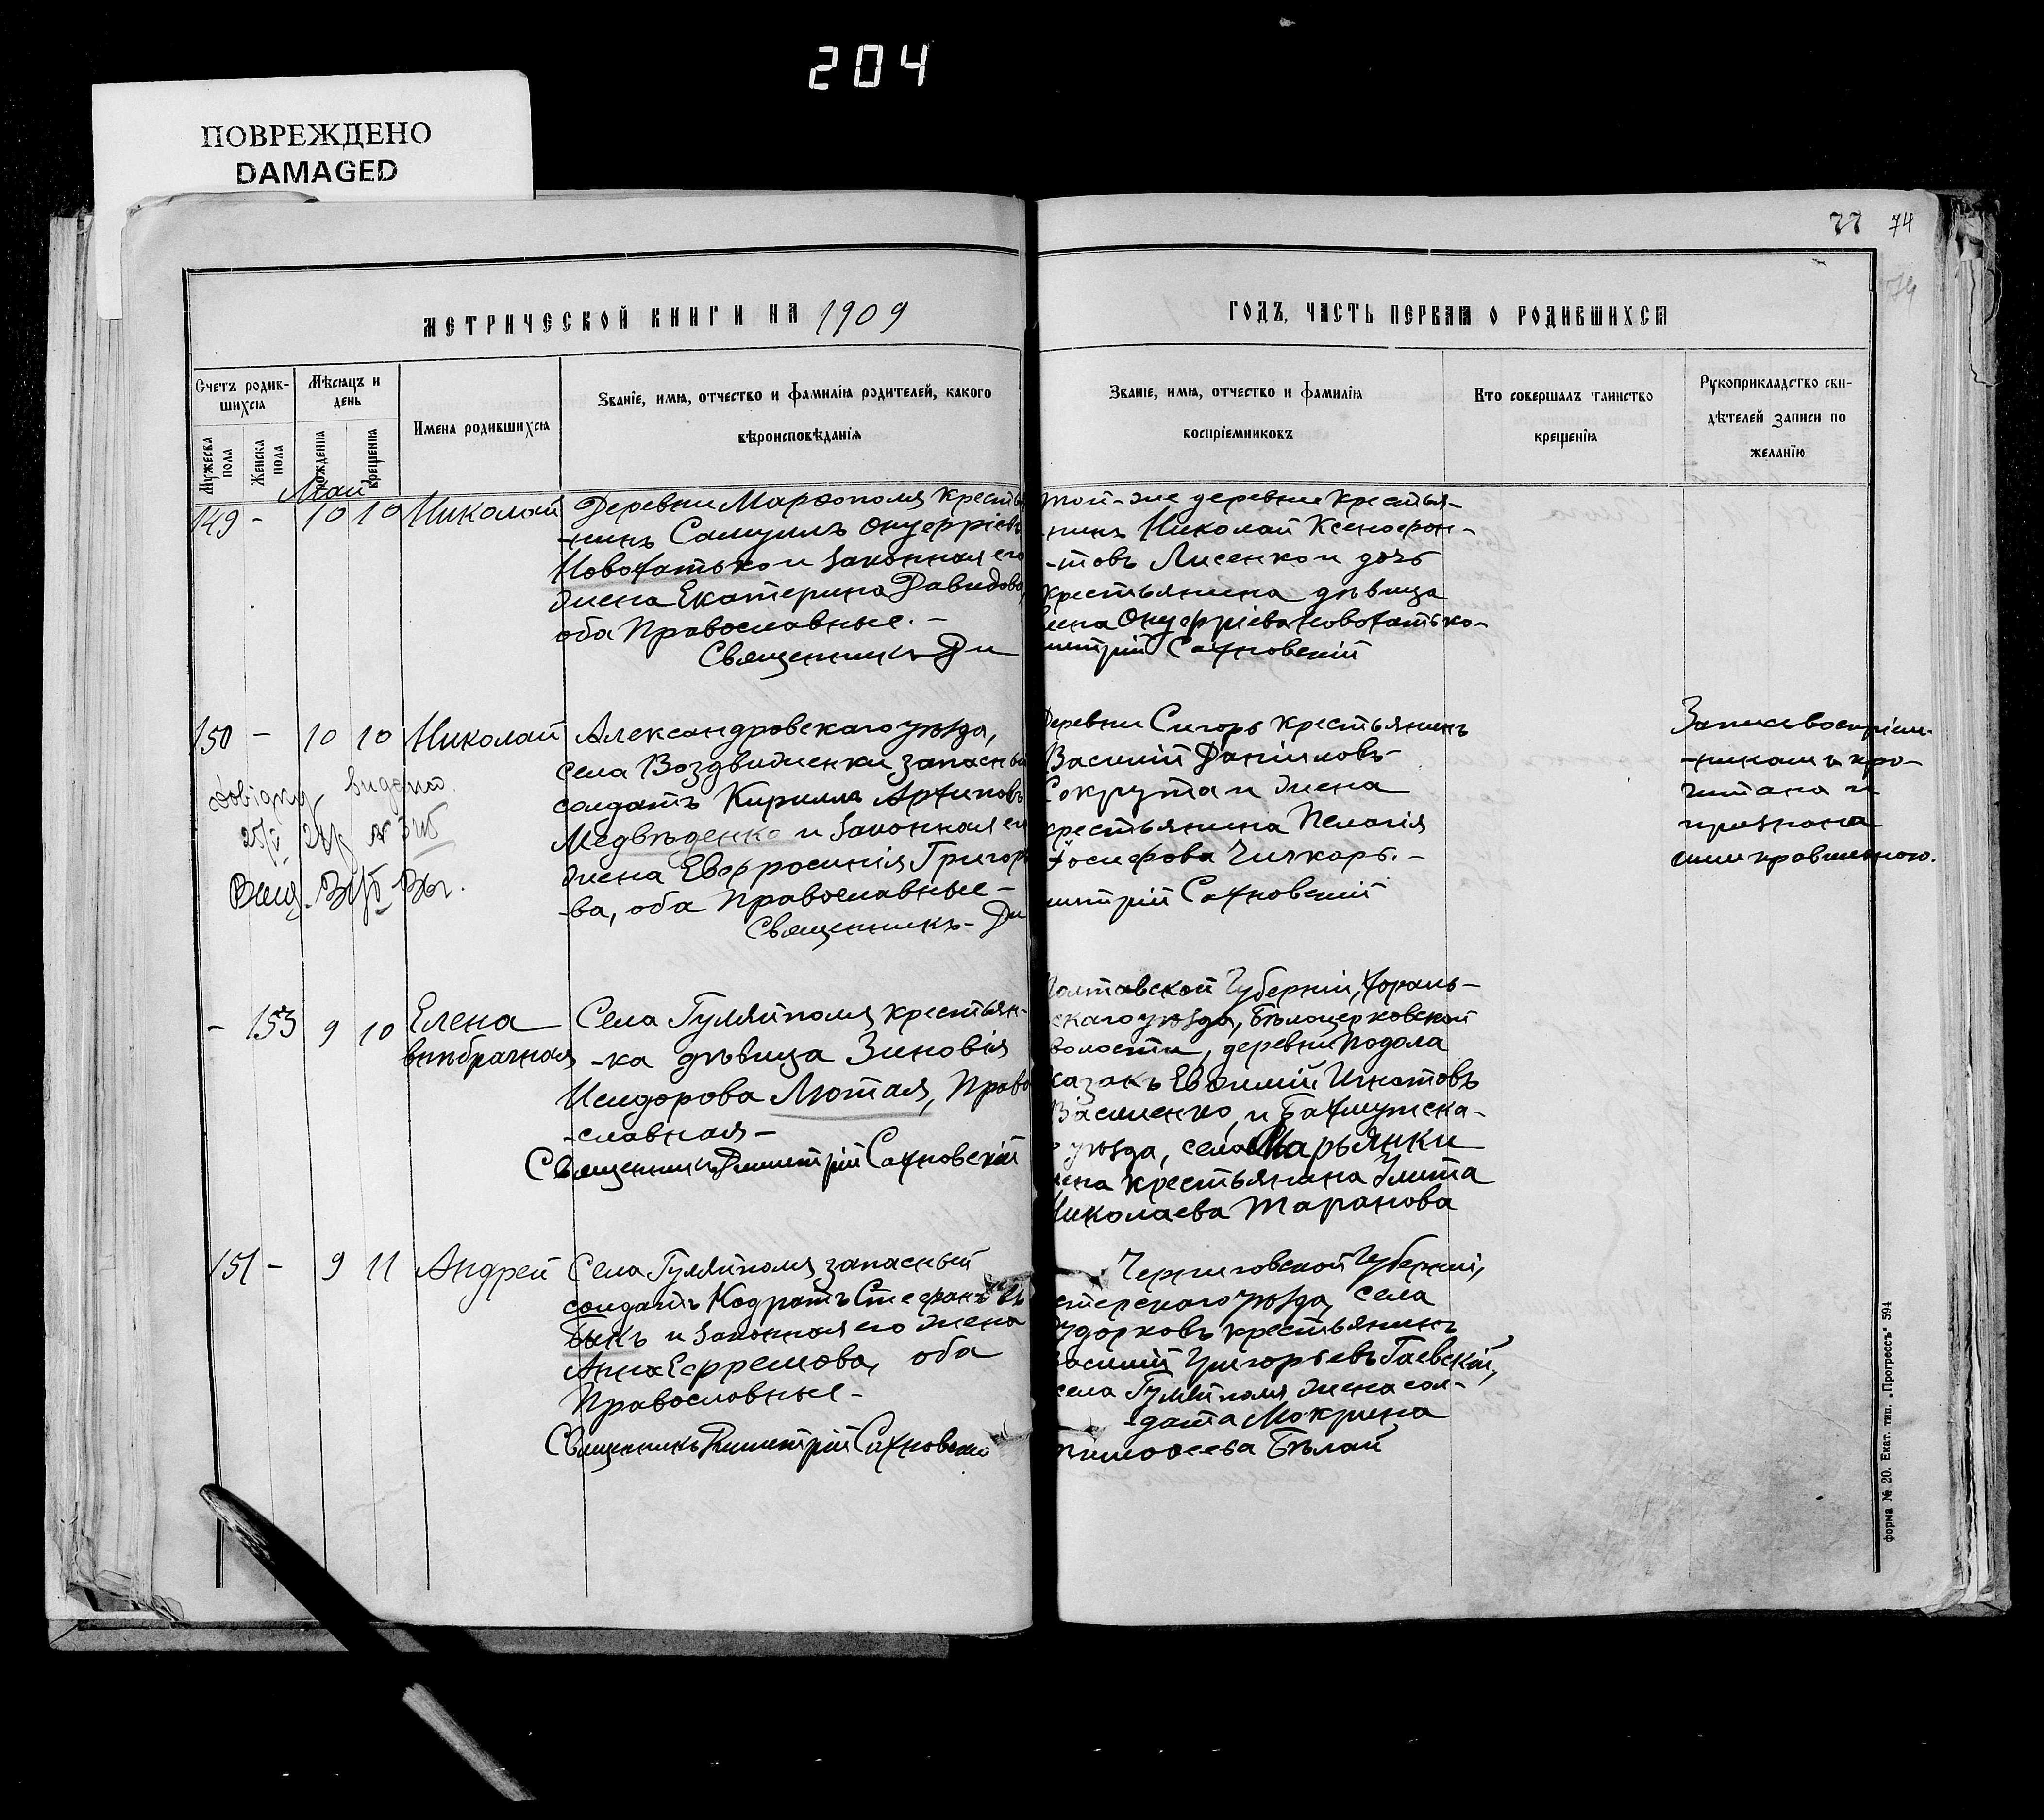 204
ПОВРЕЖДЕНО
DAMAGED
77 74
МЕТРИЧЕСКОЙ КНИГИ НА 1909
Счетъ родив-
шихся
Мѣсяцъ и
день
Имена родившихся
Званіе, имя, отчество и фамилія родителей, какого
вѣроисповѣданія
Мужеска пола
Женска пола
рожденія
крещенія
Май
149 - 10 10 Николай
Деревни Марфополя кресть
-нинъ Самуилъ Онуфріевъ
Новохатько и законная его
жена Екатерина Давидова,
оба Православные. -
Священникъ Ди
150 - 10 10 Николай
Александровскаго уѣзда,
села Воздвиженки запасный
солдатъ Кириллъ Архиповъ
Медвѣденко и законная его
жена Евфросинія Григорь
-ва, оба Православные -
Священникъ - Ди
Довідку видано
- 153 9 10 Елена
внѣбрачная
Села Гуляйполя крестьян-
-ка дѣвица Зиновія
Исидорова Лютая, Право
-славная -
Священникъ Димитрій Сахновскій
151 - 9 11 Андрей
Села Гуляйполя запасный
солдатъ Кодратъ Стефановъ
Быкъ и законная его жена
Анна Ефремова, оба
Православные -
Священникъ Димитрій Сахновскій
ГОДЪ, ЧАСТЬ ПЕРВАЯ О РОДИВШИХСЯ
Званіе, имя, отчество и фамилія
воспріемниковъ
Кто совершалъ таинство
крещенія
Рукоприкладство сви-
дѣтелей записи по
желанію
той-же деревни крестья-
-нинъ Николай Ксенофон-
-товъ Лисенко и дочь
крестьянина дѣвица
Онуфріева Новохатько-
митрій Сахновскій
Деревни Сигоръ крестьянинъ
Василій Даніиловъ
Сокрута и жена
крестьянина Пелагія
Іосифова Чижкарь. -
митрій Сахновскій
Запись воспріем-
-никамъ про-
читана и
признана
ими правильною.
Полтавской Губерніи, Хороль-
скаго уѣзда, Бѣлоцерковской
волости, деревни Подола
казакъ Евфимій Игнатовъ
Василенко, и Бахмутска-
уѣзда, села Марьянки
жена крестьянина Улита
Николаева Таранова
Черниговской Губерніи,
стерскаго уѣзда, села
крестьянинъ
Василій Григорьевъ Гаевской,
села Гуляйполя жена сол-
-дата Мокрина
Тимофеева Бѣлай
форма № 20. Екат. тип. „Прогрессъ" 594